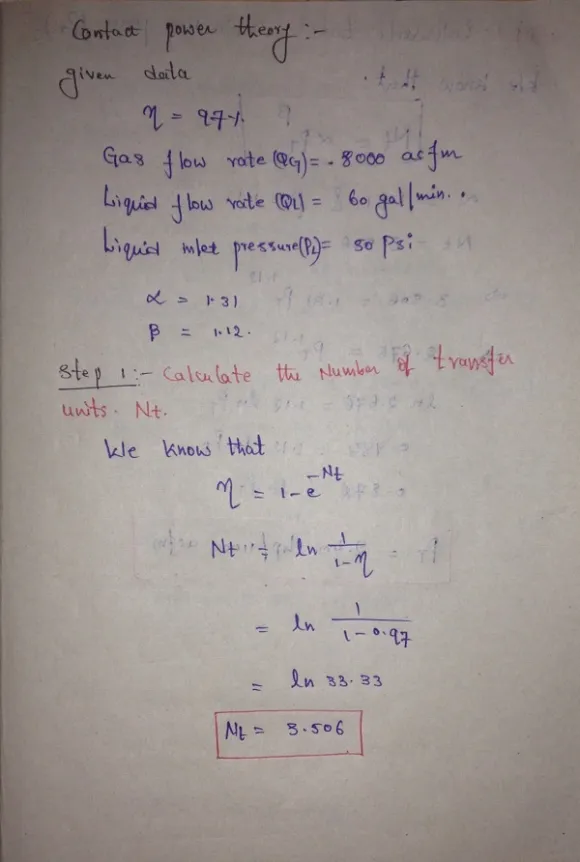 Contact power theory :-
given data
η = 97%.
Gas flow rate (QG) = . 8000 acfm
Liquid flow rate (QL) = 60 gal/min. .
Liquid inlet pressure (PL) = 80 Psi
α = 1.31
β = 1.12.
Step 1 :- Calculate the Number of transfer
units. Nt.
We know that
η = 1 - e^-Nt
Nt = ln 1/(1-η)
= ln 1/(1-0.97)
= ln 33.33
Nt = 3.506